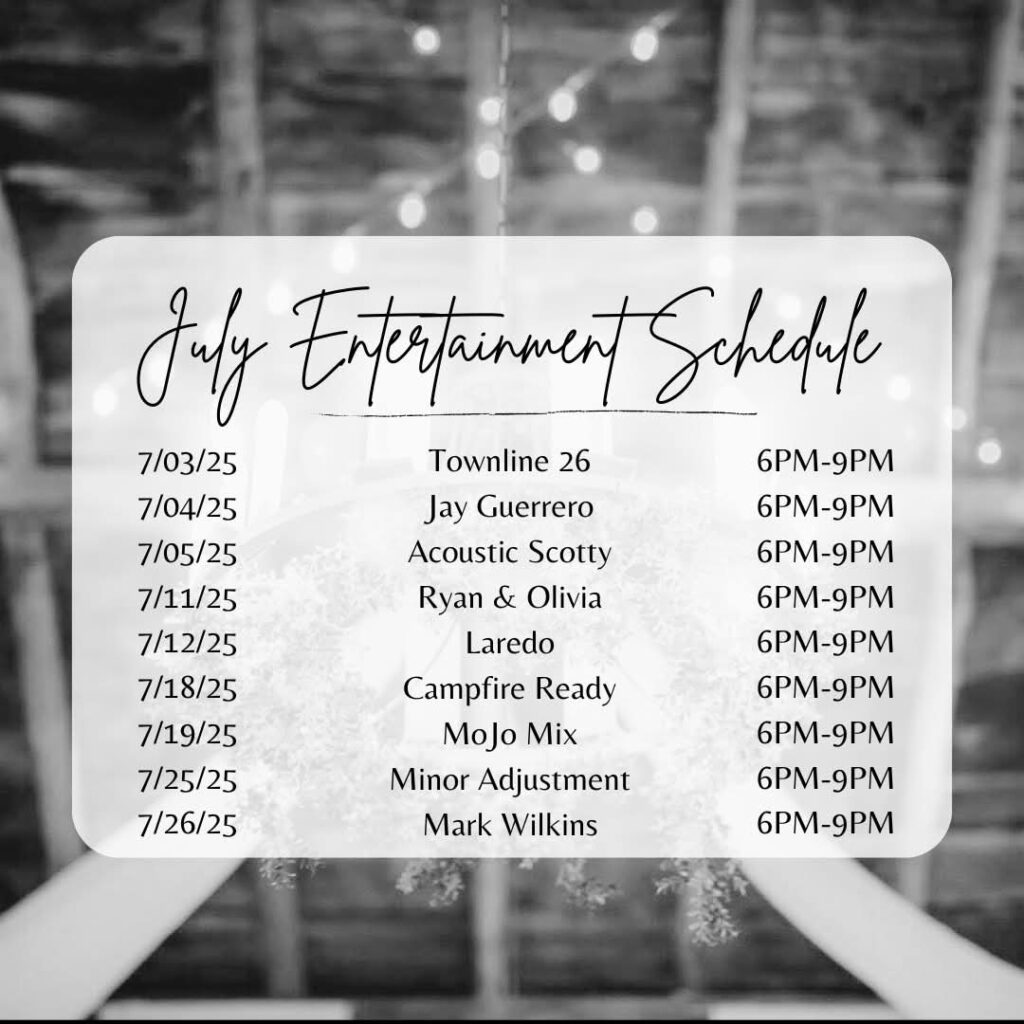 July Entertainment Schedule
7/03/25 Townline 26 6PM-9PM
7/04/25 Jay Guerrero 6PM-9PM
7/05/25 Acoustic Scotty 6PM-9PM
7/11/25 Ryan & Olivia 6PM-9PM
7/12/25 Laredo 6PM-9PM
7/18/25 Campfire Ready 6PM-9PM
7/19/25 MoJo Mix 6PM-9PM
7/25/25 Minor Adjustment 6PM-9PM
7/26/25 Mark Wilkins 6PM-9PM